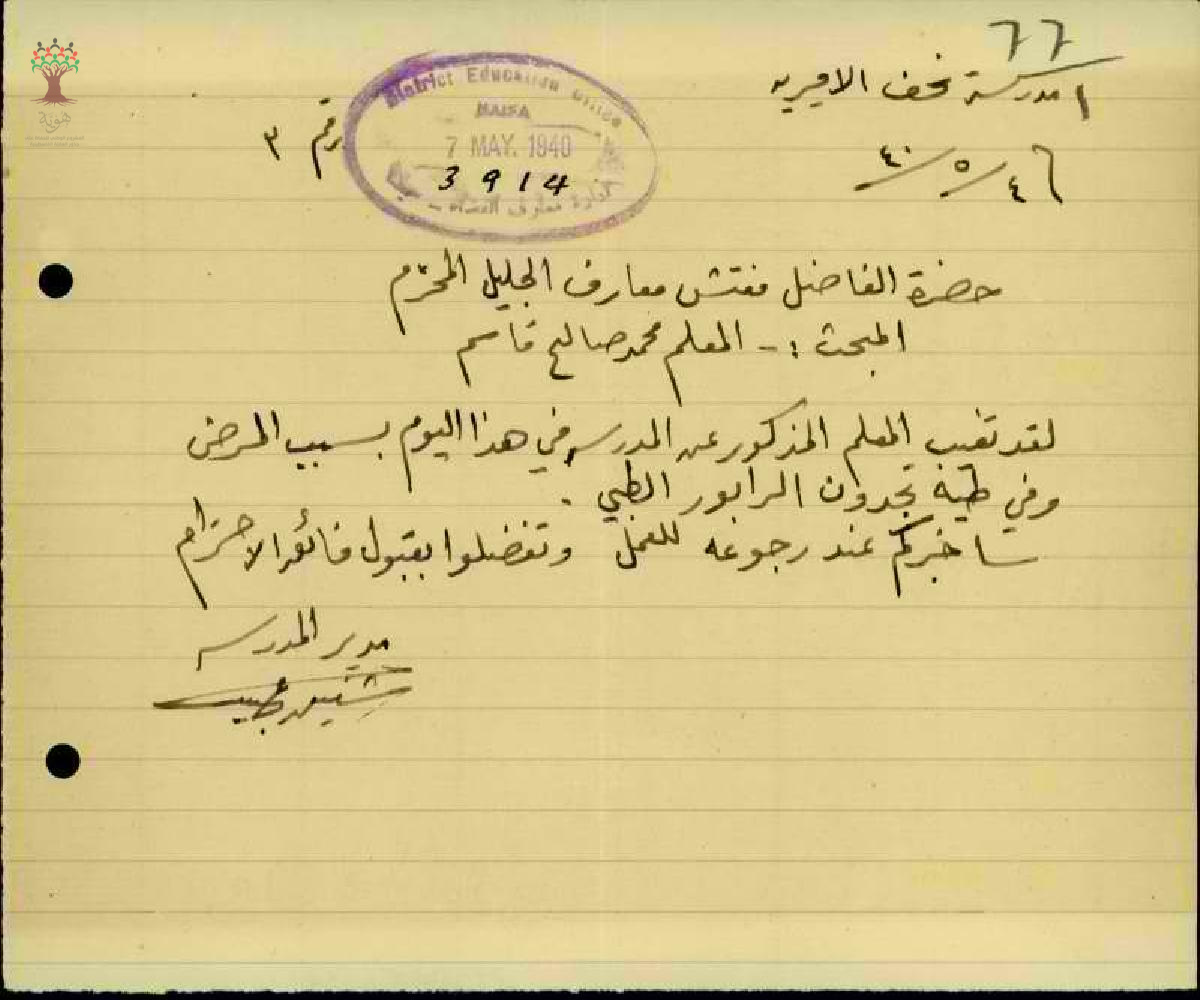 66
مدرسة نحف الاميريه
District Education Office
HAIFA
7 MAY. 1940
3914
رقم ٣
٤/٥/٤٠
حضرة الفاضل مفتش معارف الجليل المحترم
المبحث :- المعلم محمد صالح قاسم
لقد تغيب المعلم المذكور عن المدرسه في هذا اليوم بسبب المرض
وفي طيه تجدون الرابور الطبي .
سأخبركم عند رجوعه للعمل وتفضلوا بقبول فائق الاحترام
مدير المدرسه
هوية